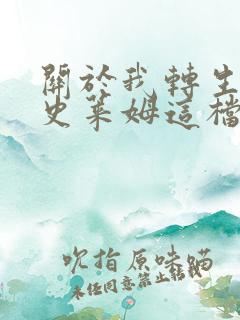 關於我轉生
史萊姆這檔
吹指原味蹣
未任同意禁止轉載